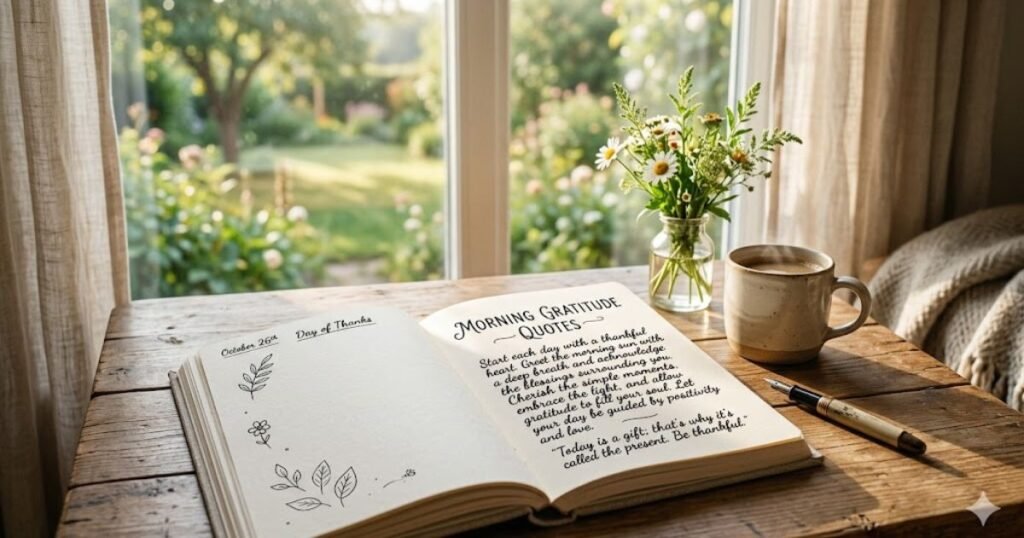 October 26th Day of Thanks
MORNING GRATITUDE
QUOTES
Start each day with a thankful
heart. Greet the morning sun with
a deep breath and acknowledge
the blessings surrounding you.
Cherish the simple moments,
embrace the light, and allow
gratitude to fill your soul. Let
your day be guided by positivity
and love.
"Today is a gift; that's why it's
called the present. Be thankful."